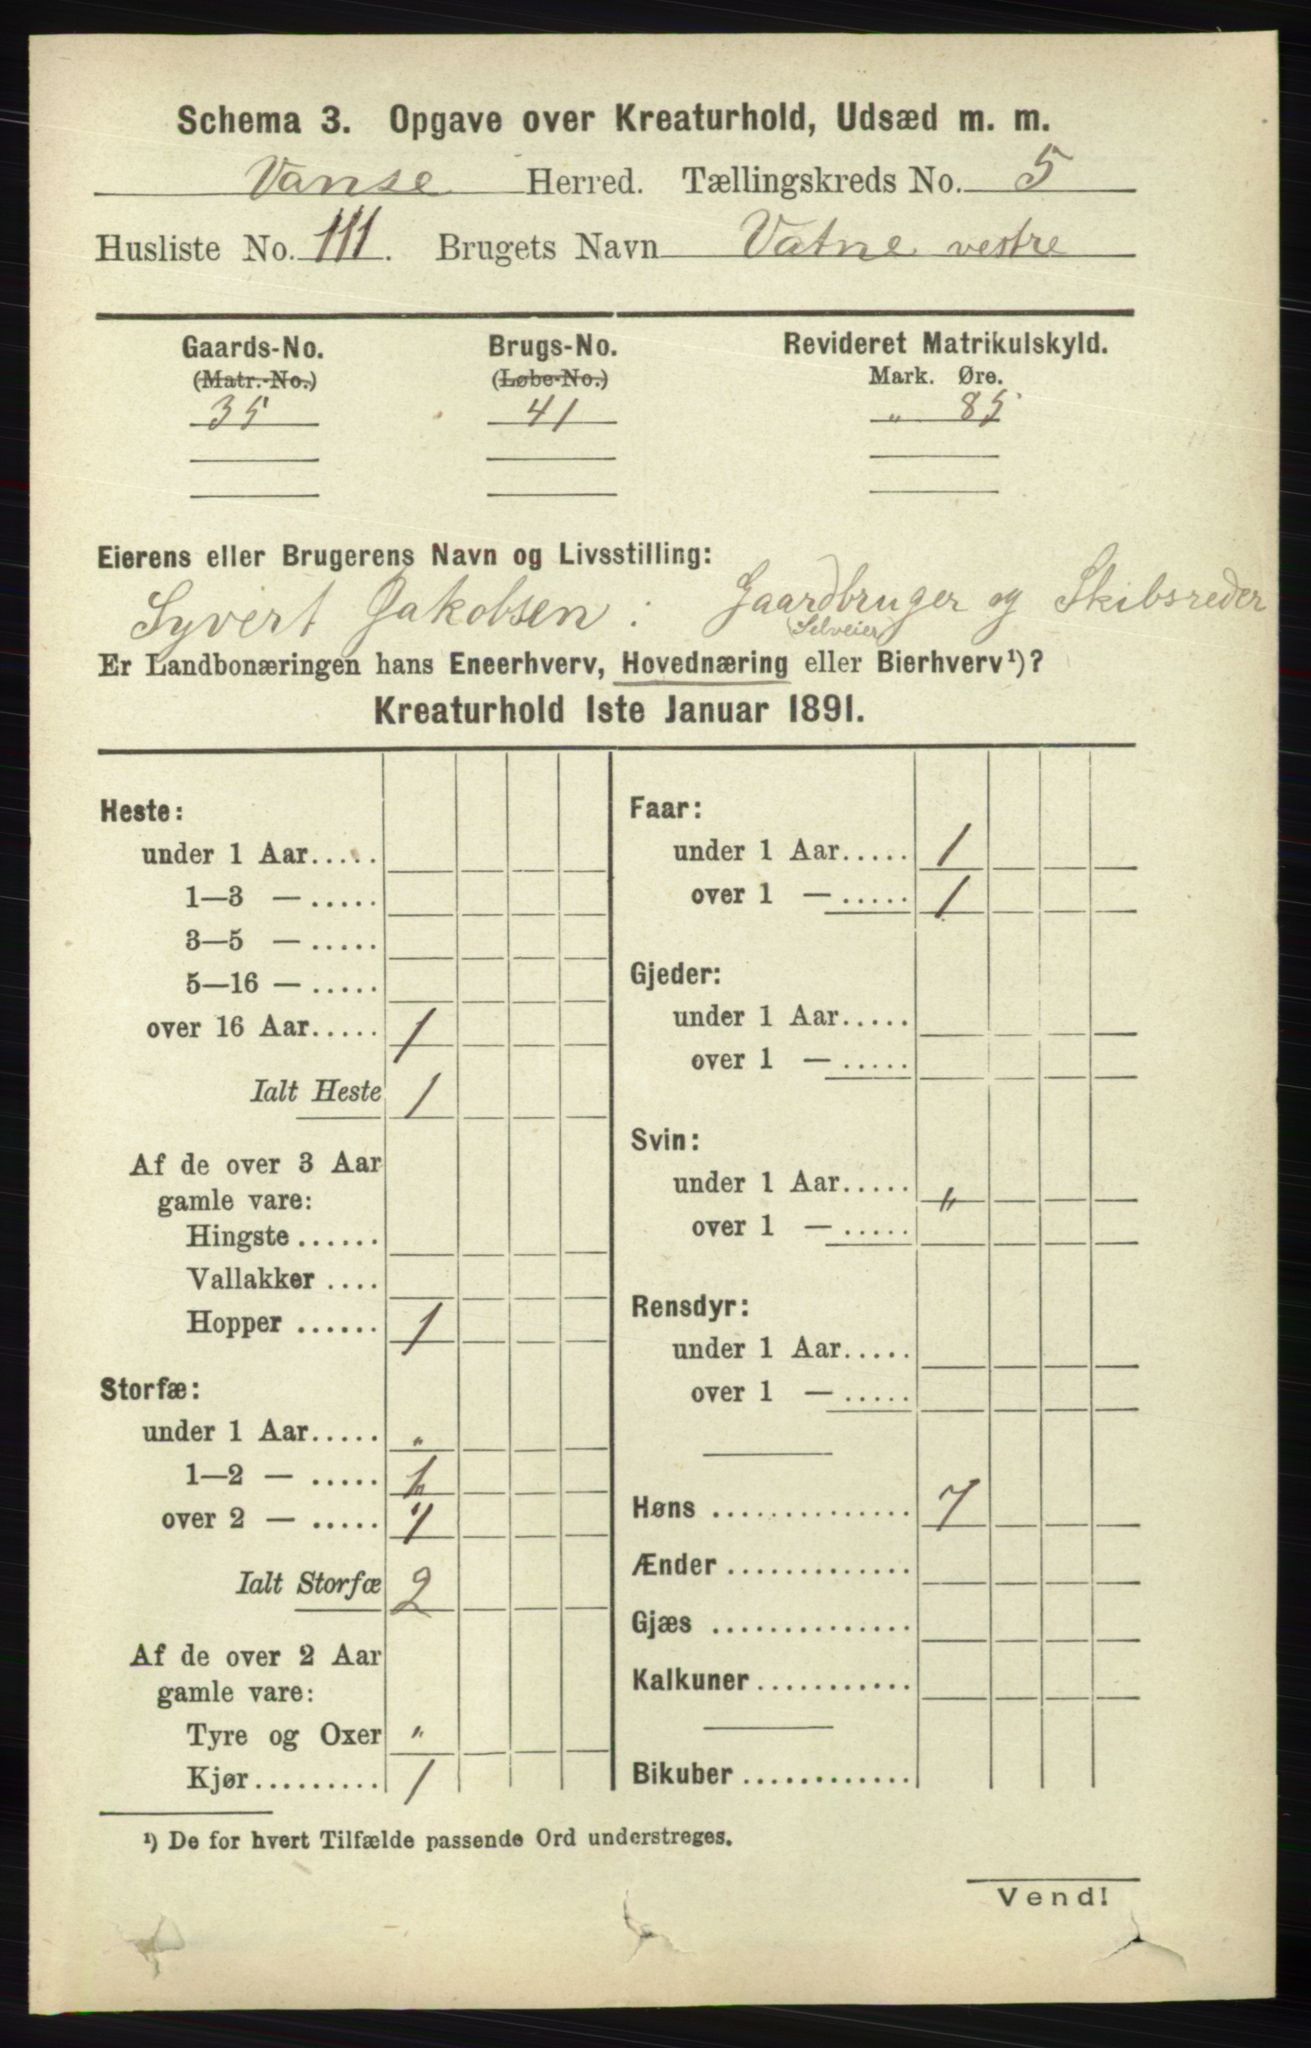 Schema 3. Opgave over Kreaturhold, Udsæd m. m.
Vanse Herred. Tællingskreds No. 5
Husliste No. 111. Brugets Navn Vatne vestre
Gaards-No. Brugs-No. Revideret Matrikulskyld.
(Matr.-No.) (Løbe-No.) Mark. Øre.
35 41 " 85
Eierens eller Brugerens Navn og Livsstilling:
Syvert Jakobsen: Gaardbruger og Skibsreder
(Selveier)
Er Landbonæringen hans Eneerhverv, Hovednæring eller Bierhverv¹)?
Kreaturhold 1ste Januar 1891.
Heste:
under 1 Aar.....
1—3 — .....
3—5 — .....
5—16 — .....
over 16 Aar..... 1
Ialt Heste 1
Af de over 3 Aar
gamle vare:
Hingste ......
Vallakker ....
Hopper ...... 1
Storfæ:
under 1 Aar..... "
1—2 — ..... 1
over 2 — ..... 1
Ialt Storfæ 2
Af de over 2 Aar
gamle vare:
Tyre og Oxer "
Kjør......... 1
Faar:
under 1 Aar..... 1
over 1 — ..... 1
Gjeder:
under 1 Aar.....
over 1 — .....
Svin:
under 1 Aar..... "
over 1 — .....
Rensdyr:
under 1 Aar.....
over 1 — .....
Høns .............. 7
Ænder .............
Gjæs ..............
Kalkuner ...........
Bikuber ............
¹) De for hvert Tilfælde passende Ord understreges.
Vend!